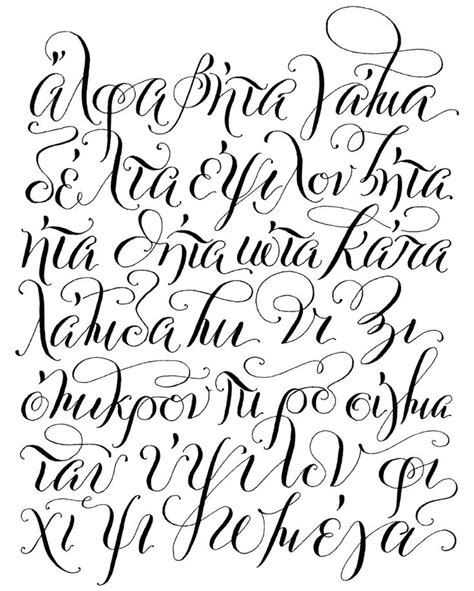 ἄλφα βήτα γάμα
δέλτα ἔψιλον ζήτα
ἠτα θήτα ιώτα κάπα
λάμδα μι νι ξι
ὄμικρον πι ρο σίγμα
ταυ ὕψιλον φι
χι ψι ωμέγα